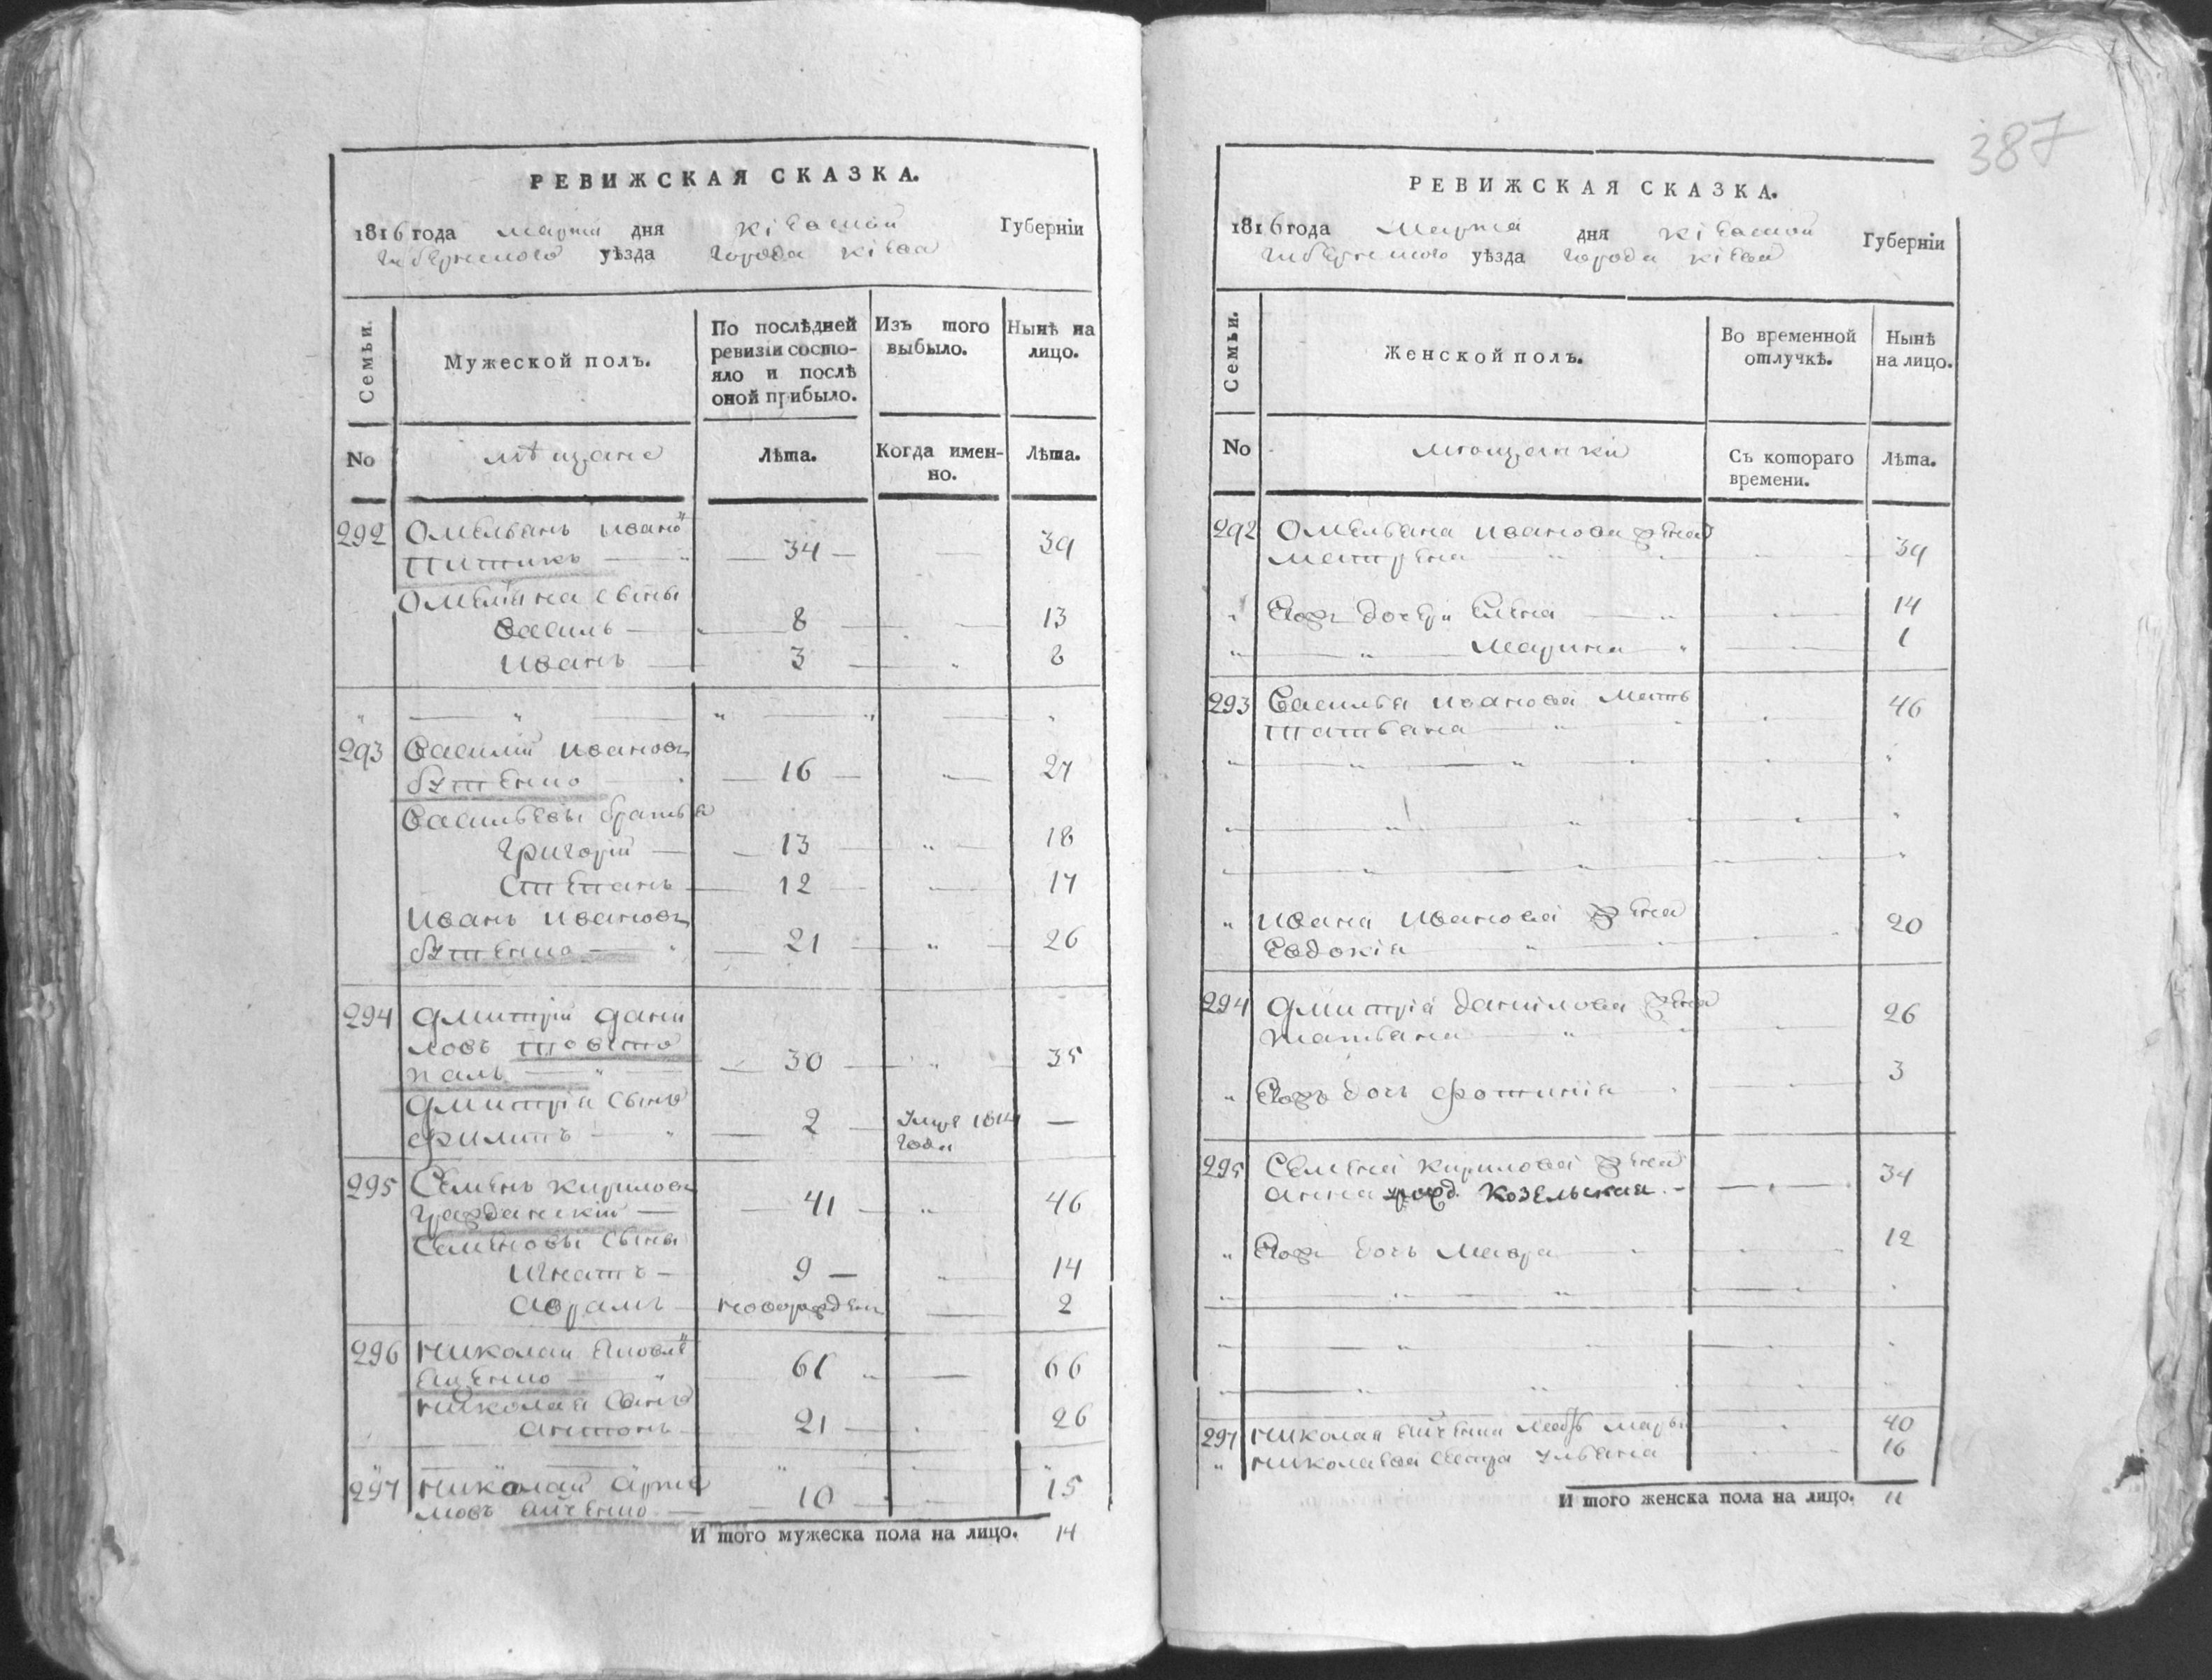 РЕВИЖСКАЯ СКАЗКА.
1816 года марта дня Кіевской Губерніи
Губернского уѣзда города Кіева
Семьи.
Мужеской полъ.
По послѣдней ревизіи состояло и послѣ оной прибыло.
Изъ того выбыло.
Нынѣ на лицо.
No
мѣщане
Лѣта.
Когда именно.
Лѣта.
292 Омельянъ Ивано
34 39
Омеляна сыны
Василь 8 13
Иванъ 3 8
293 Василій Ивановъ
Бутенко 16 21
Васильевы братья
Григорій 13 18
Степанъ 12 17
Иванъ Ивановъ
Бутенко 21 26
294 Дмитрій Дани
ловъ Товсто
палъ 30 35
Дмитрія сынъ
Филипъ 2 умре 1814 года —
295 Семенъ Кириловъ
Гражданскій 41 46
Семеновы сыны
Игнатъ 9 14
Аврамъ новорожден 2
296 Николай Яковле
61 66
Николая сынъ
Антонъ 21 26
297 Николай Арте
мовъ 10 15
И того мужеска пола на лицо. 14
387
РЕВИЖСКАЯ СКАЗКА.
1816 года Марта дня Кіевской Губерніи
Губернского уѣзда города Кіева
Семьи.
Женской полъ.
Во временной отлучкѣ.
Нынѣ на лицо.
No
мѣщанки
Съ котораго времени.
Лѣта.
292 Омельяна Иванова жена
Матрена 39
Ихъ дочери Елена 14
Марина 1
293 Василья Иванова мать
Татьяна 46
Ивана Иванова жена
Евдокія 20
294 Дмитрія Данилова жена
Татьяна 26
Ихъ дочь Фотинія 3
295 Семена Кирилова жена
Анна урожд. Козельская 34
Ихъ дочь Мавра 12
297 Николая мать Марья 40
Николаева сестра Ульяна 16
И того женска пола на лицо. 11